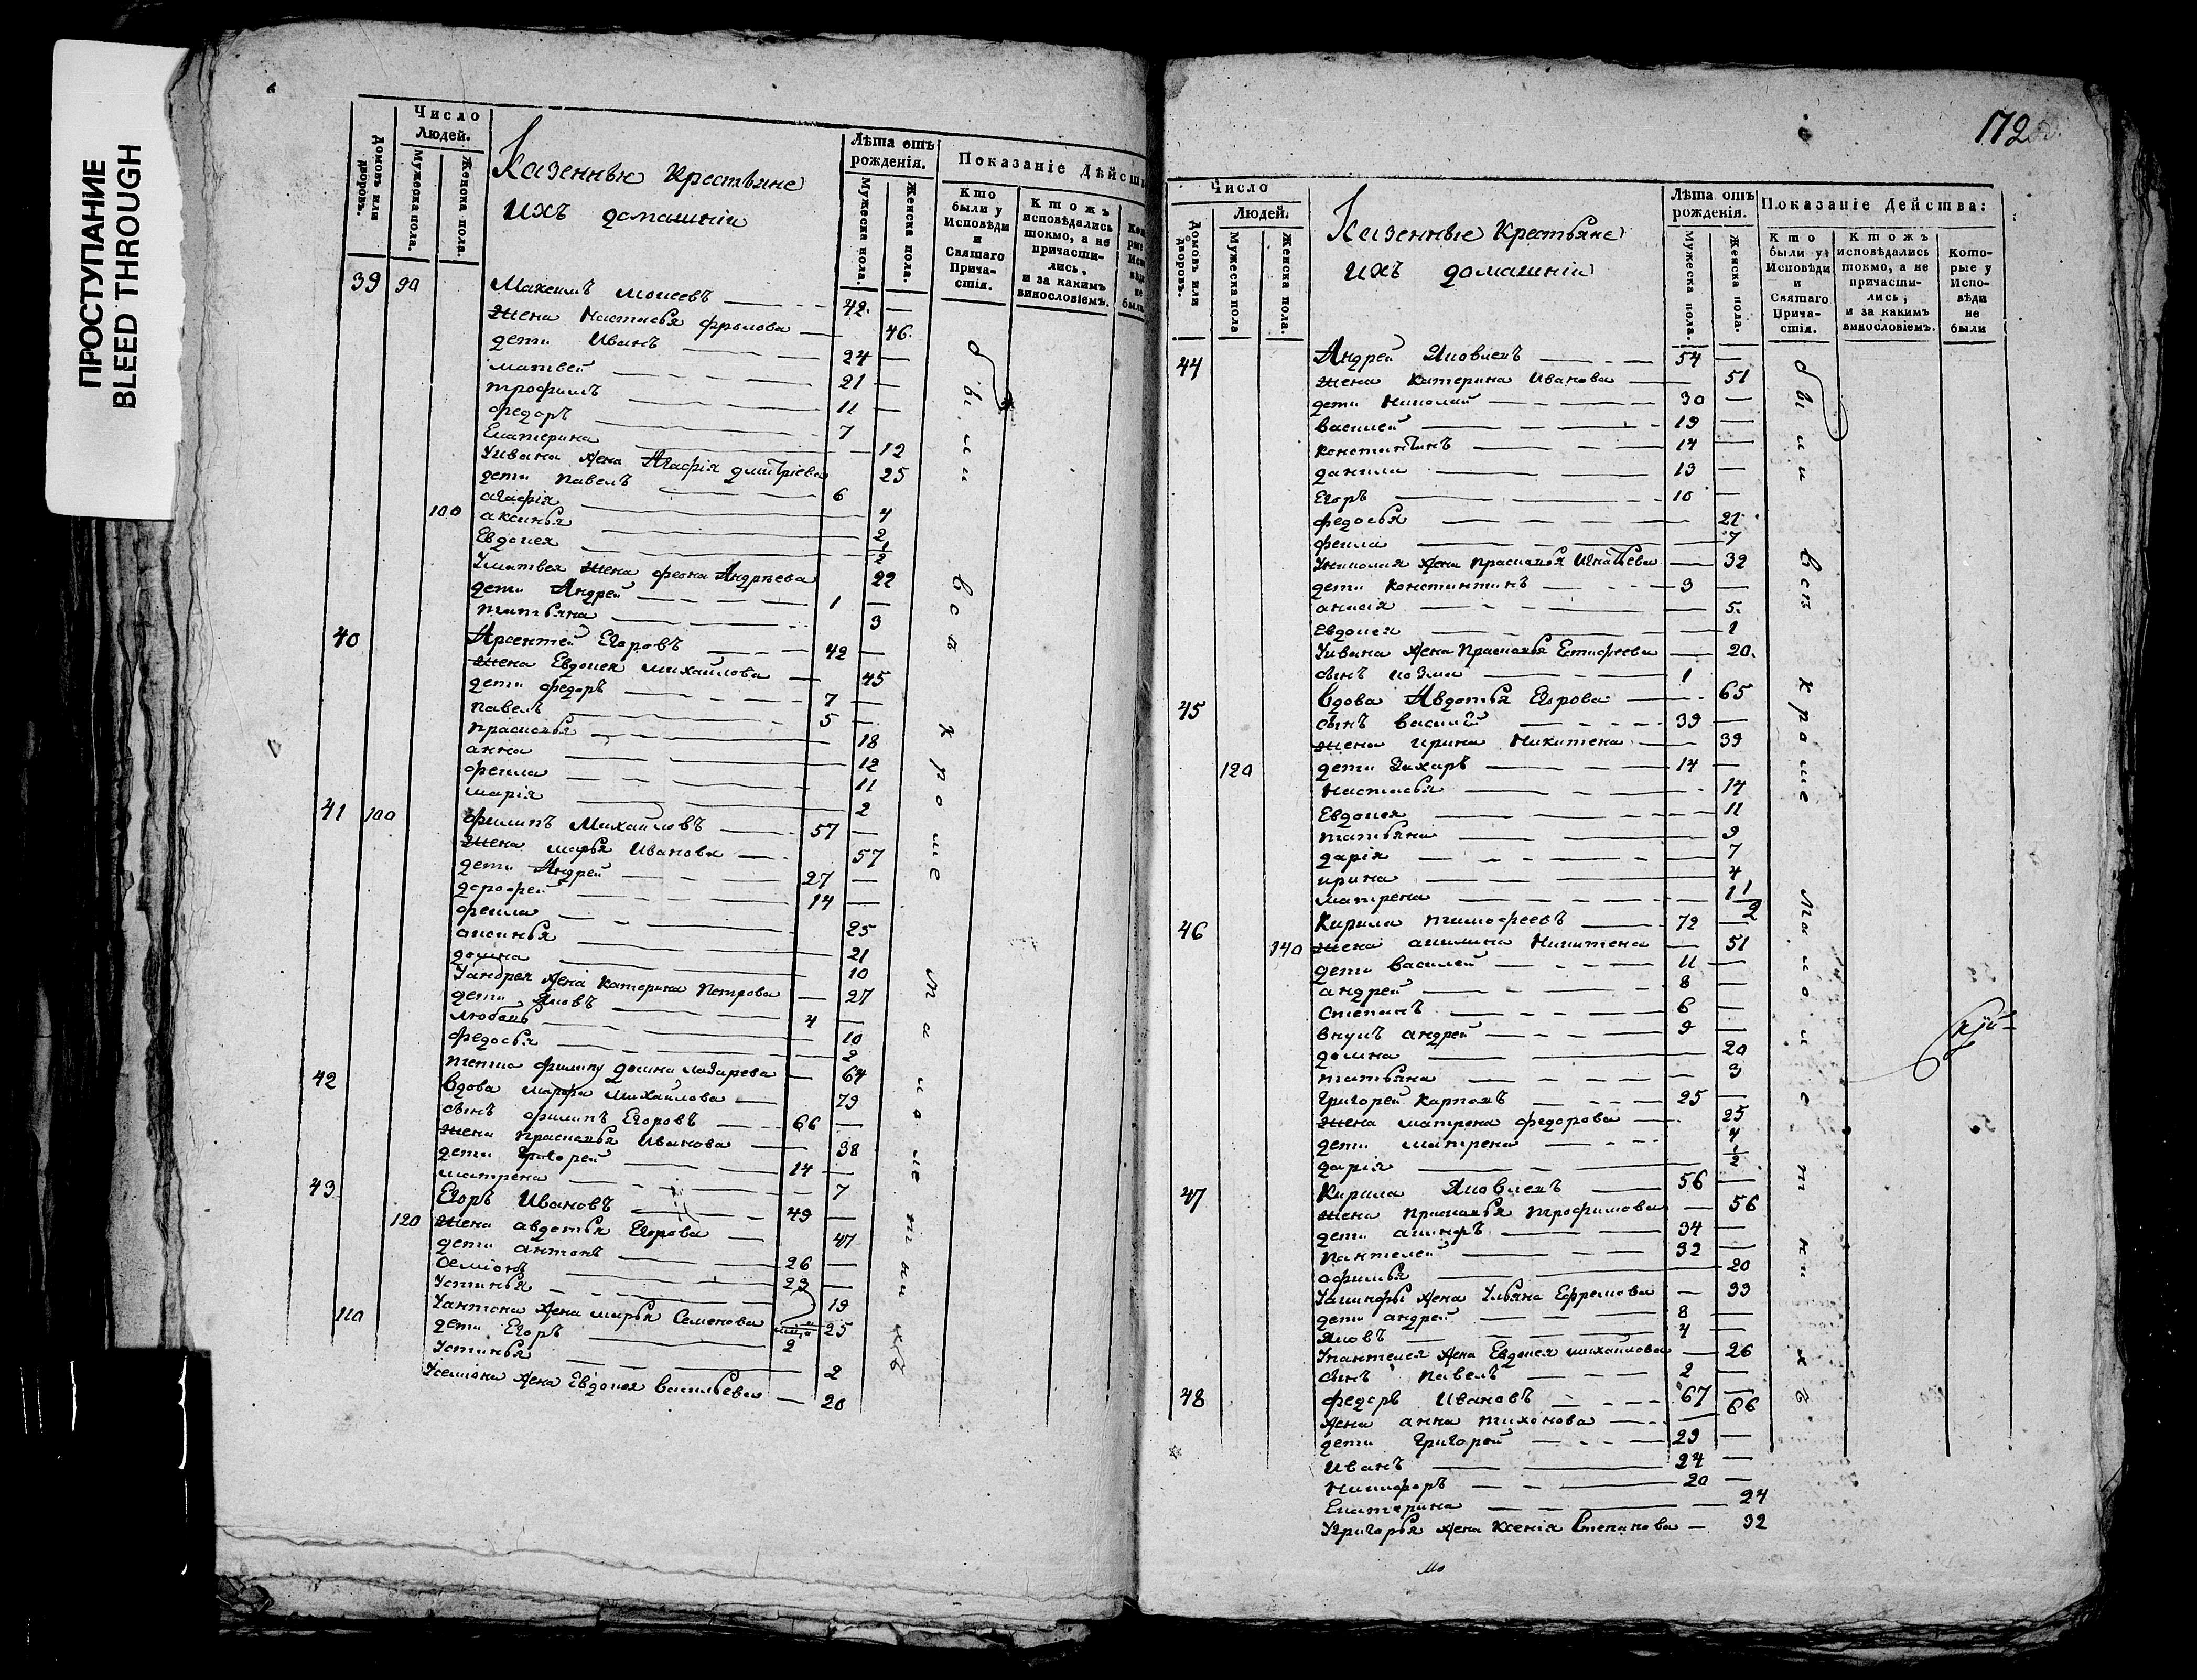 ПРОСТУПАНИЕ
BLEED THROUGH
Число
Людей.
Домовъ или дворовъ.
Мужеска пола.
Женска пола.
Казенные Крестьяне
ихъ домашнiи
Лѣта отъ
рожденiя.
Мужеска пола.
Женска пола.
Показанiе Дѣйст
Кто
были у
Исповѣди
и
Святаго
Прича-
стiя.
Ктожъ
исповѣдались
токмо, а не
причасти-
лись,
и за какимъ
винословiемъ.
39 90 Максимъ Моисеевъ 42
жена Настасья Фролова 46
дети Иванъ 24
матвей 21
трофимъ 11
федоръ 7
Екатерина 12
Уивана жена Агафiя дмитрiева 25
дети павелъ 6
агафiя 4
100 аксинья 2
Евдокея 1/2
Уматвея жена феона Андреева 22
дети Андрей 1
татьяна 3
40 Арсентей Егоровъ 42
жена Евдокея михайлова 45
дети федоръ 7
павелъ 5
прасковья 18
анна 12
фекла 11
марiя 2
41 100 филипъ Михайловъ 57
жена марья Иванова 57
дети Андрей 27
дорофей 14
фекла 25
аксинья 21
домна 10
Уандрея жена катерина петрова 27
дети Яковъ 4
любовь 10
федосья 2
тетка филипу домна лазарева 64
42 Вдова марфа михайлова 79
сынъ филипъ Егоровъ 66
жена прасковья Иванова 38
дети григорей 14
матрена 7
43 Егоръ Ивановъ 49
120 жена авдотья Егорова 47
дети антонъ 26
семiонъ 23
Устинья 19
Уантона жена марья Семенова 25
110 дети Егоръ 2
Устинья 2
Усемiона жена Евдокея васильева 20
были вся кроме малолетныхъ
172
Число
Людей.
Домовъ или дворовъ.
Мужеска пола
Женска пола.
Казенные Крестьяне
ихъ домашнiи
Лѣта отъ
рожденiя.
Мужеска пола.
Женска пола.
Показанiе Действа:
Кто
были у
Исповѣди
и
Святаго
Прича-
стiя.
Ктожъ
исповѣдались
токмо, а не
причасти-
лись,
и за какимъ
винословiемъ.
Кото-
рые у
Испо-
вѣди
не
были
44 Андрей Яковлевъ 54
жена катерина Иванова 51
дети Николай 30
василей 19
константинъ 14
данила 13
Егоръ 10
федосья 21
фекла 7
Униколая жена прасковья Игнатьева 32
дети константинъ 3
анисiя 5
Евдокея 1
Уивана жена прасковья Естифеева 20
сынъ козма 1
45 Вдова Авдотья Егорова 65
сынъ василий 39
жена ирина Никитена 39
120 дети Захаръ 14
Настасья 14
Евдокея 11
татьяна 9
дарiя 7
ирина 4
матрена 1 1/2
46 Кирила тимофеевъ 72
140 жена акилина Никитена 51
дети василей 11
андрей 8
степанъ 6
внукъ андрей 9
домна 20
татьяна 3
григорей карповъ 25
жена матрена федорова 25
дети матрена 4
дарiя 1/2
47 Кирила Яковлевъ 56
жена прасковья трофимова 56
дети 34
пантелей 32
афимья 20
жена Ульяна Ефремова 33
дети андрей 8
Яковъ 4
Упантелея жена Евдокея михайлова 26
сынъ павелъ 2
48 федоръ Ивановъ 67
жена анна тихонова 66
дети григорей 29
Иванъ 24
Никифоръ 20
Екатерина 24
Угригорья жена ксенiя Степанова 32
были вси кроме малолетнихъ